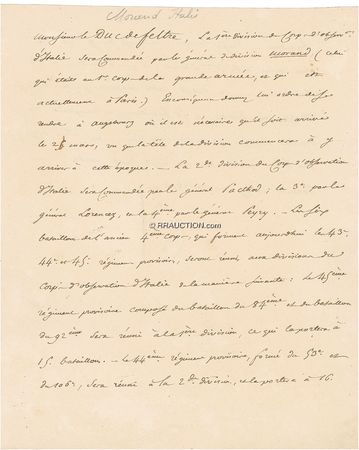 Morand Italie
Monsieur le Duc de feltre, La 1ère division du Corps d'observ.on
d'Italie sera Commandée par le général de division Morand (celui
qui était au 1er corps de la grande armée, et qui est
actuellement à Paris). En conséquence donnez lui ordre de se
rendre à augsbourg où il est nécessaire qu'il soit arrivé
le 25 mars, vu que la tête de la division commencera à y
arriver à cette époque. — La 2de division du Corps d'observation
d'Italie sera Commandée par le général Pacthod; la 3e par le
général Lorencez, et la 4ème par le général Peyry. — Les six
bataillons de l'ancien 4ème corps, qui forment aujourd'hui les 43e,
44e et 45e régimens provisoires, seront réunis aux divisions du
Corps d'observation d'Italie de la manière suivante: le 45ème
régiment provisoire composé du bataillon du 84ème et du bataillon
du 92ème sera réuni à la 1ère division, ce qui la portera à
15 bataillons. — le 44ème régiment provisoire, formé du 53e et
du 106e, sera réuni à la 2de division, et la portera à 16.
© RRAUCTION.COM